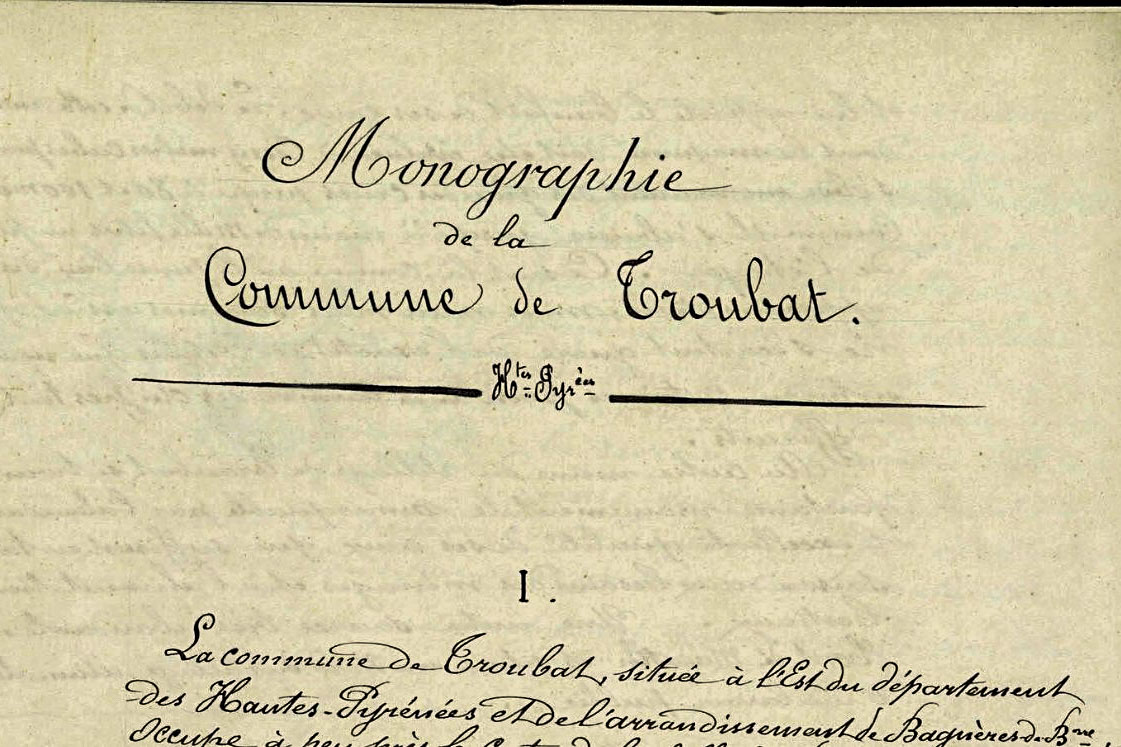 Monographie
de la
Commune de Troubat.
Htes Pyrées
I.
La commune de Troubat, située à l'Est du département
des Hautes-Pyrénées et de l'arrondissement de Bagnères de Bne,
occupe à peu près le